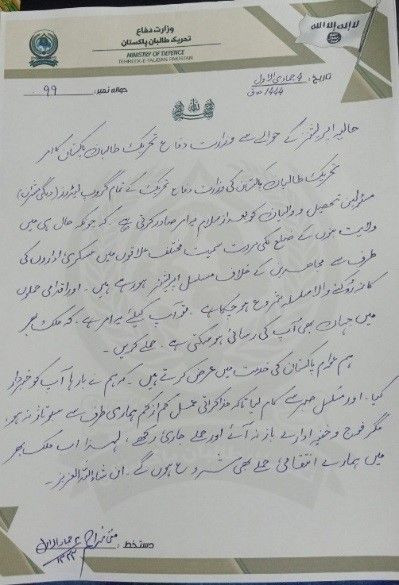 وزارت دفاع
تحریک طالبان پاکستان
MINISTRY OF DEFENCE
TEHREEK-E-TALIBAN PAKISTAN
لا إله إلا الله
تاریخ: 4 جمادی الاول
1444
حوالہ نمبر: 99
حالیہ اپریشنز کے حوالے سے وزارت دفاع تحریک طالبان پاکستان کا امر
تحریک طالبان پاکستان کی وزارت دفاع تحریک کے تمام گروپ لیڈروز
مسئولین تحصیل و والیان کو بعد از سلام یہ امر صادر کرتی ہے۔ کہ چونکہ حال ہی میں
ولایت بنوں کے ضلع لکی مروت سمیت مختلف علاقوں میں عسکری اداروں کی
طرف سے مجاہدین کے خلاف مسلسل اپریشنز ہو رہے ہیں، اور اقدامی حملوں
کا نہ رکنے والا سلسلہ شروع ہو چکا ہے۔ تو آپ کیلئے یہ امر ہے۔ کہ ملک بھر
میں جہاں بھی آپ کی رسائی ہو سکتی ہے۔ حملے کریں۔
ہم عوام پاکستان کی خدمت میں عرض کرتے ہیں۔ کہ ہم نے بارہا آپ کو خبردار
کیا، اور مسلسل صبر سے کام لیا تاکہ مذاکراتی عمل کم از کم ہماری طرف سے سبوتاژ نہ ہو،
مگر فوج و خفیہ ادارے باز نہ آئے اور حملے جاری رکھے، لہذا اب ملک بھر
میں ہمارے انتقامی حملے بھی شروع ہوں گے۔ ان شاءاللہ العزیز۔
دستخط: